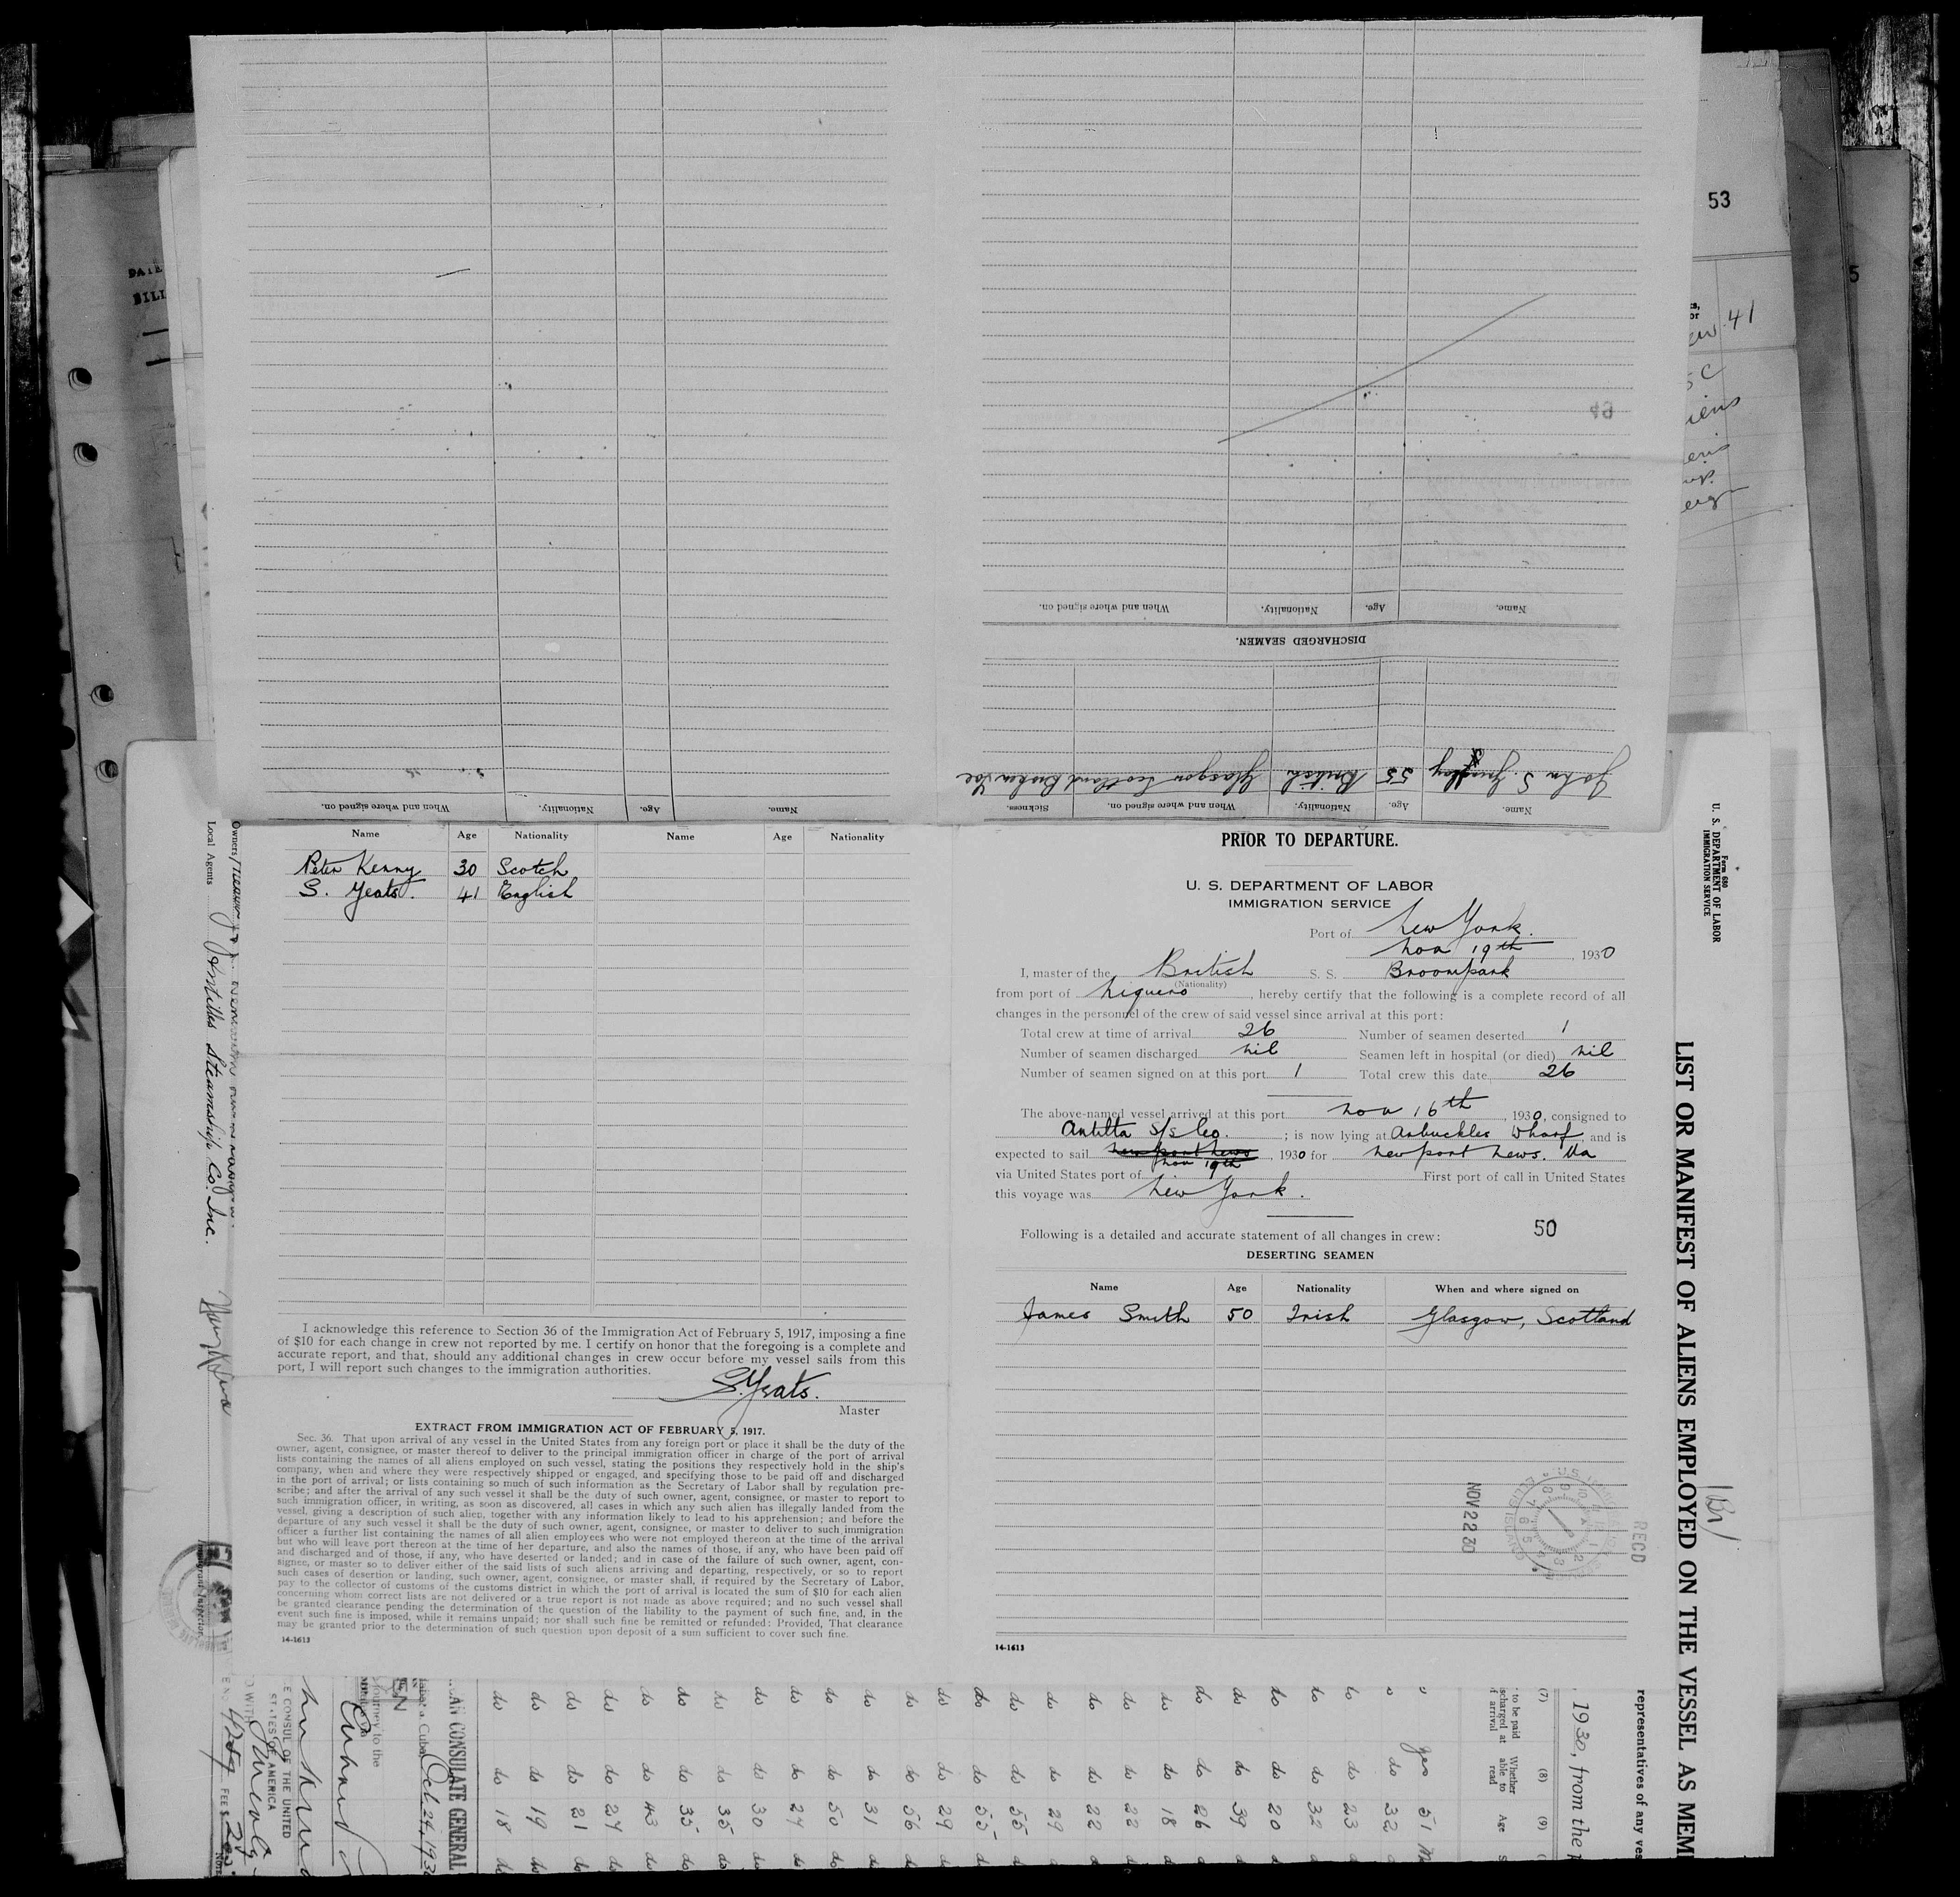 53
5
41
49
When and where signed on.
Nationality.
Age.
Name.
DISCHARGED SEAMEN.
John S.
55
British
Glasgow Scotland
Name.
Age.
Nationality.
When and where signed on.
Sickness.
Name.
Age.
Nationality.
When and where signed on.
Name Age Nationality Name Age Nationality
Peter Kenny 30 Scotch
S. Yeats. 41 English
I acknowledge this reference to Section 36 of the Immigration Act of February 5, 1917, imposing a fine
of $10 for each change in crew not reported by me. I certify on honor that the foregoing is a complete and
accurate report, and that, should any additional changes in crew occur before my vessel sails from this
port, I will report such changes to the immigration authorities.
S. Yeats.
Master
EXTRACT FROM IMMIGRATION ACT OF FEBRUARY 5, 1917.
Sec. 36. That upon arrival of any vessel in the United States from any foreign port or place it shall be the duty of the
owner, agent, consignee, or master thereof to deliver to the principal immigration officer in charge of the port of arrival
lists containing the names of all aliens employed on such vessel, stating the positions they respectively hold in the ship's
company, when and where they were respectively shipped or engaged, and specifying those to be paid off and discharged
in the port of arrival; or lists containing so much of such information as the Secretary of Labor shall by regulation pre-
scribe; and after the arrival of any such vessel it shall be the duty of such owner, agent, consignee, or master to report to
such immigration officer, in writing, as soon as discovered, all cases in which any such alien has illegally landed from the
vessel, giving a description of such alien, together with any information likely to lead to his apprehension; and before the
departure of any such vessel it shall be the duty of such owner, agent, consignee, or master to deliver to such immigration
officer a further list containing the names of all alien employees who were not employed thereon at the time of the arrival
but who will leave port thereon at the time of her departure, and also the names of those, if any, who have been paid off
and discharged and of those, if any, who have deserted or landed; and in case of the failure of such owner, agent, con-
signee, or master so to deliver either of the said lists of such aliens arriving and departing, respectively, or so to report
such cases of desertion or landing, such owner, agent, consignee, or master shall, if required by the Secretary of Labor,
pay to the collector of customs of the customs district in which the port of arrival is located the sum of $10 for each alien
concerning whom correct lists are not delivered or a true report is not made as above required; and no such vessel shall
be granted clearance pending the determination of the question of the liability to the payment of such fine, and, in the
event such fine is imposed, while it remains unpaid; nor shall such fine be remitted or refunded: Provided, That clearance
may be granted prior to the determination of such question upon deposit of a sum sufficient to cover such fine.
14-1613
PRIOR TO DEPARTURE.
U. S. DEPARTMENT OF LABOR
IMMIGRATION SERVICE
Port of New York.
Nov 19th, 1930
I, master of the British S. S. Broompark
(Nationality)
from port of Niquero, hereby certify that the following is a complete record of all
changes in the personnel of the crew of said vessel since arrival at this port:
Total crew at time of arrival 26 Number of seamen deserted 1
Number of seamen discharged nil Seamen left in hospital (or died) nil
Number of seamen signed on at this port 1 Total crew this date 26
The above-named vessel arrived at this port Nov 16th, 1930, consigned to
Antilla S/S Co. ; is now lying at Arbuckles Wharf, and is
expected to sail Newport News Nov 19th, 1930 for Newport News. Va
via United States port of First port of call in United States
this voyage was New York.
50
Following is a detailed and accurate statement of all changes in crew:
DESERTING SEAMEN
Name Age Nationality When and where signed on
James Smith 50 Irish Glasgow, Scotland
NOV 22 30
RECD
14-1613
Form 680
U. S. DEPARTMENT OF LABOR
IMMIGRATION SERVICE
LIST OR MANIFEST OF ALIENS EMPLOYED ON THE VESSEL AS MEM
representatives of any ves
1930, from the
Local Agents Antilles Steamship Co. Inc.
Owners
Immigrant Inspector.
(7) (8) (9)
Whether able to read
Age
yes 51
do 32
do 23
do 32
do 20
do 39
do 26
do 18
do 22
do 22
do 29
do 55
do 55
do 29
do 56
do 31
do 50
do 27
do 30
do 35
do 35
do 43
do 27
do 21
do 19
do 18
CAN CONSULATE GENERAL
Cuba Oct 24, 193
journey to the
E CONSUL OF THE UNITED
STATES OF AMERICA
FEE $